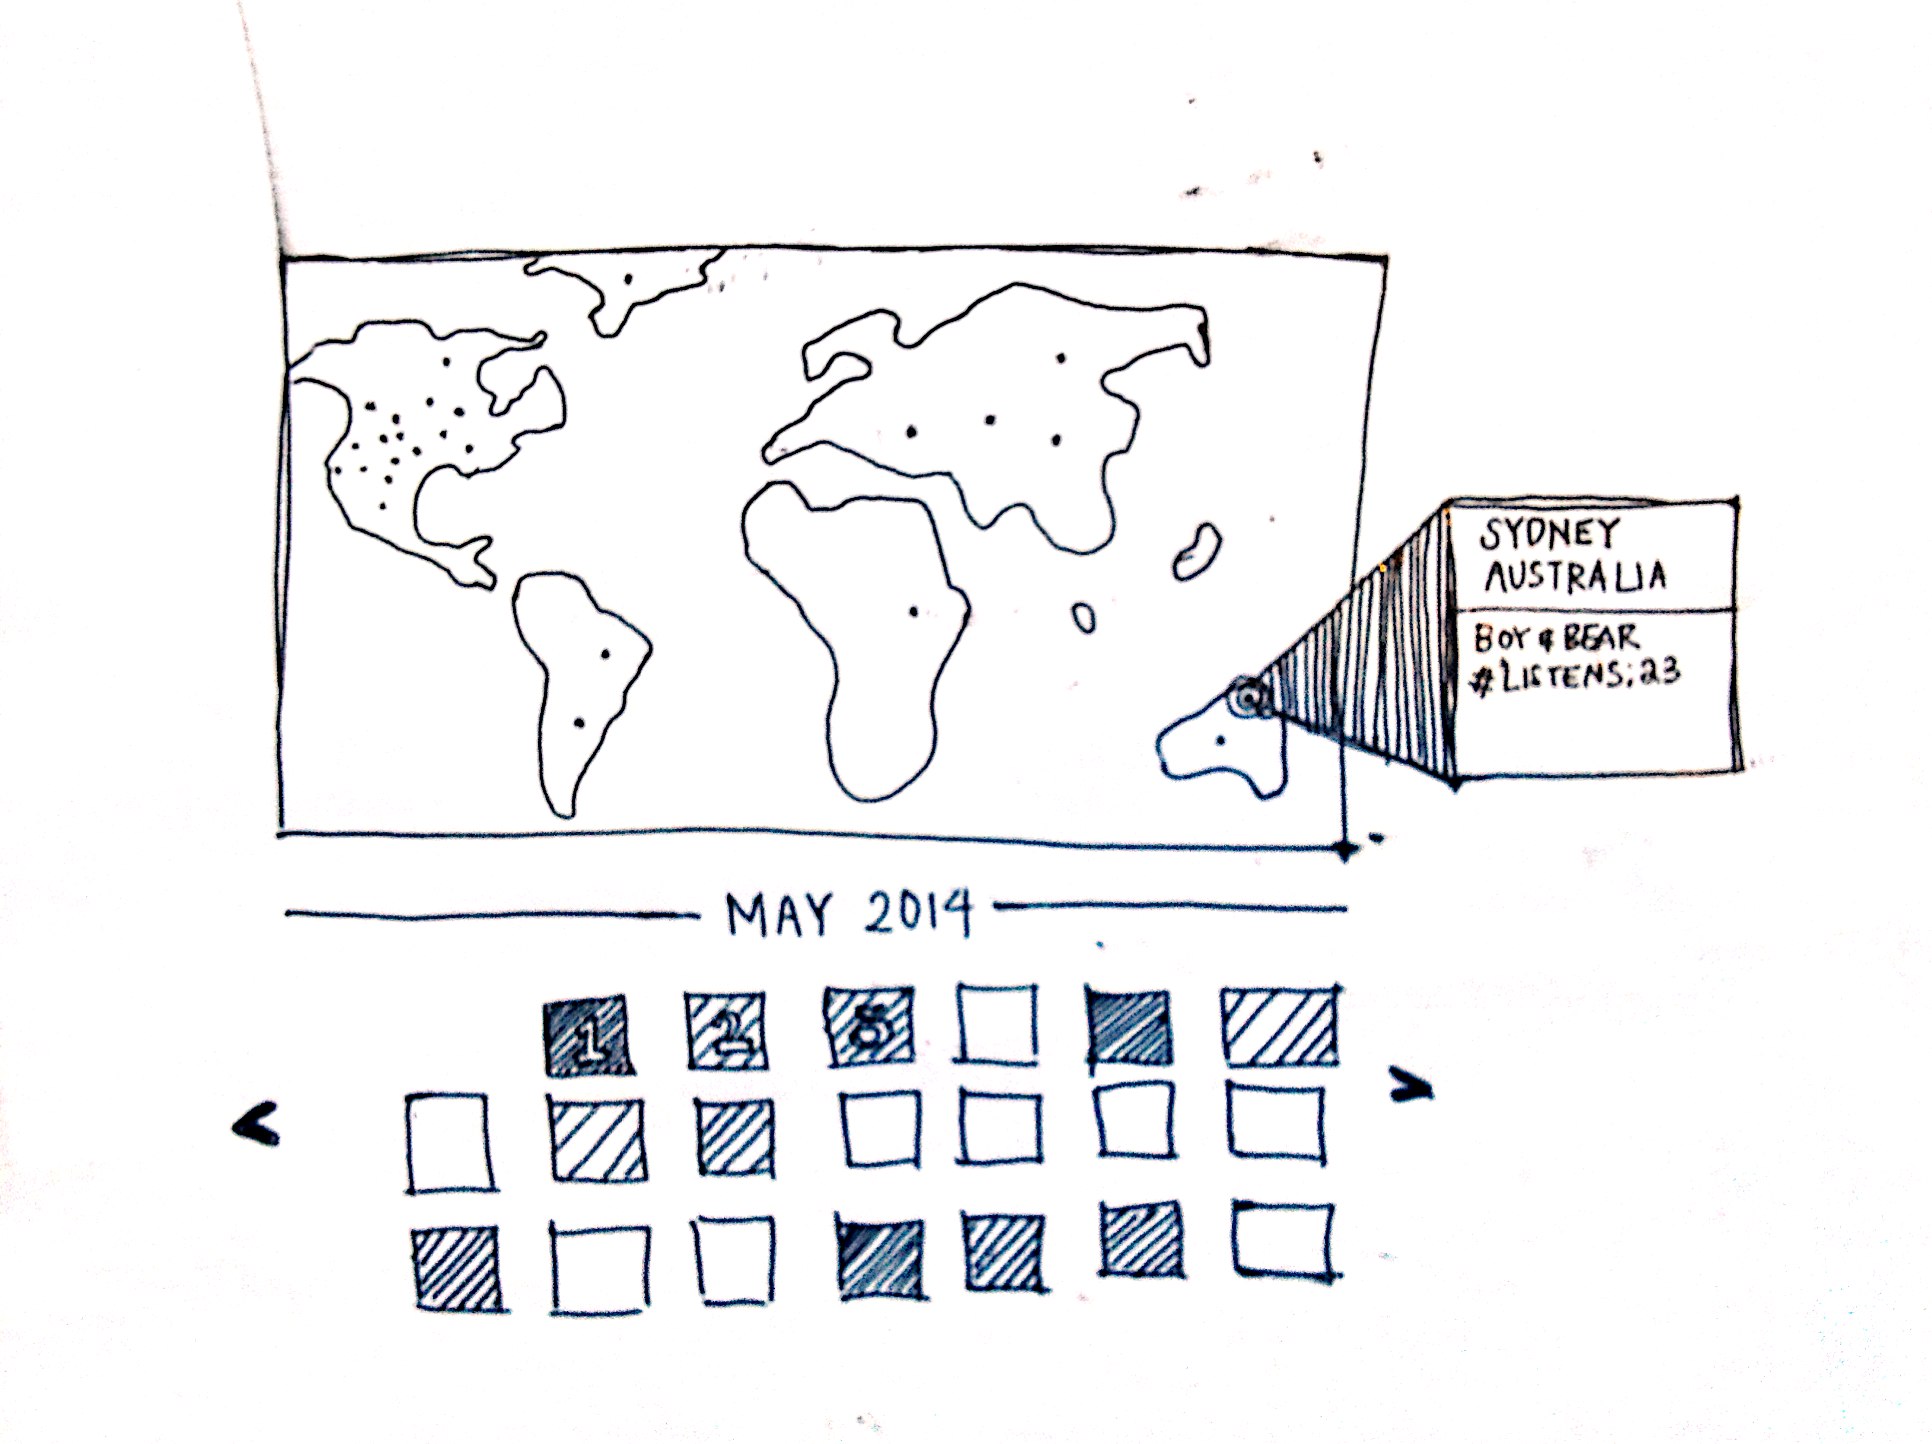 SYDNEY
AUSTRALIA
BOY & BEAR
#LISTENS: 23
MAY 2014
1 2 3
< >